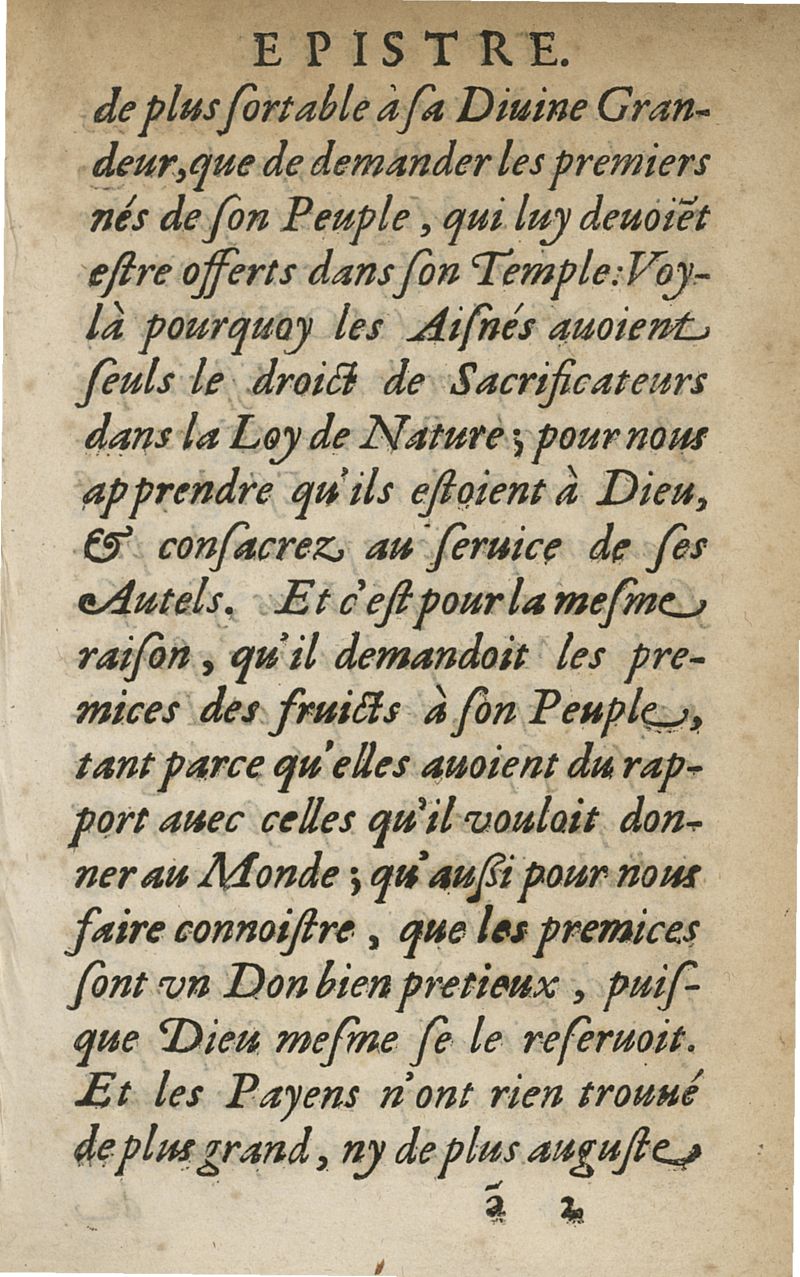 EPISTRE.
de plus ſortable à ſa Diuine Gran-
deur, que de demander les premiers
nés de ſon Peuple, qui luy deuoiẽt
eſtre offerts dans ſon Temple: Voy-
là pourquoy les Aiſnés auoient
ſeuls le droict de Sacrificateurs
dans la Loy de Nature; pour nous
apprendre qu'ils eſtoient à Dieu,
& conſacrez au ſeruice de ſes
Autels. Et c'eſt pour la meſme
raiſon, qu'il demandoit les pre-
mices des fruicts à ſon Peuple,
tant parce qu'elles auoient du rap-
port auec celles qu'il vouloit don-
ner au Monde; qu'auſſi pour nous
faire connoiſtre, que les premices
ſont vn Don bien pretieux, puiſ-
que Dieu meſme ſe le reſeruoit.
Et les Payens n'ont rien trouué
de plus grand, ny de plus auguſte
ã 2